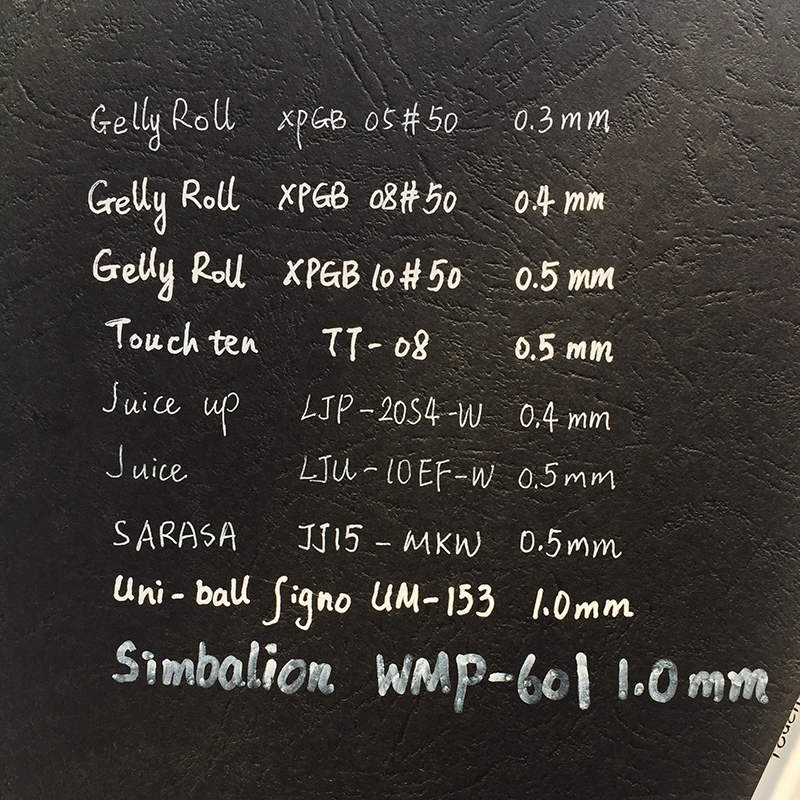 Gelly Roll XPGB 05#50 0.3mm
Gelly Roll XPGB 08#50 0.4 mm
Gelly Roll XPGB 10#50 0.5 mm
Touch ten TT-08 0.5 mm
Juice up LJP-20S4-W 0.4 mm
Juice LJU-10EF-W 0.5mm
SARASA JJ15-MKW 0.5mm
Uni-ball Signo UM-153 1.0mm
Simbalion WMP-601 1.0mm